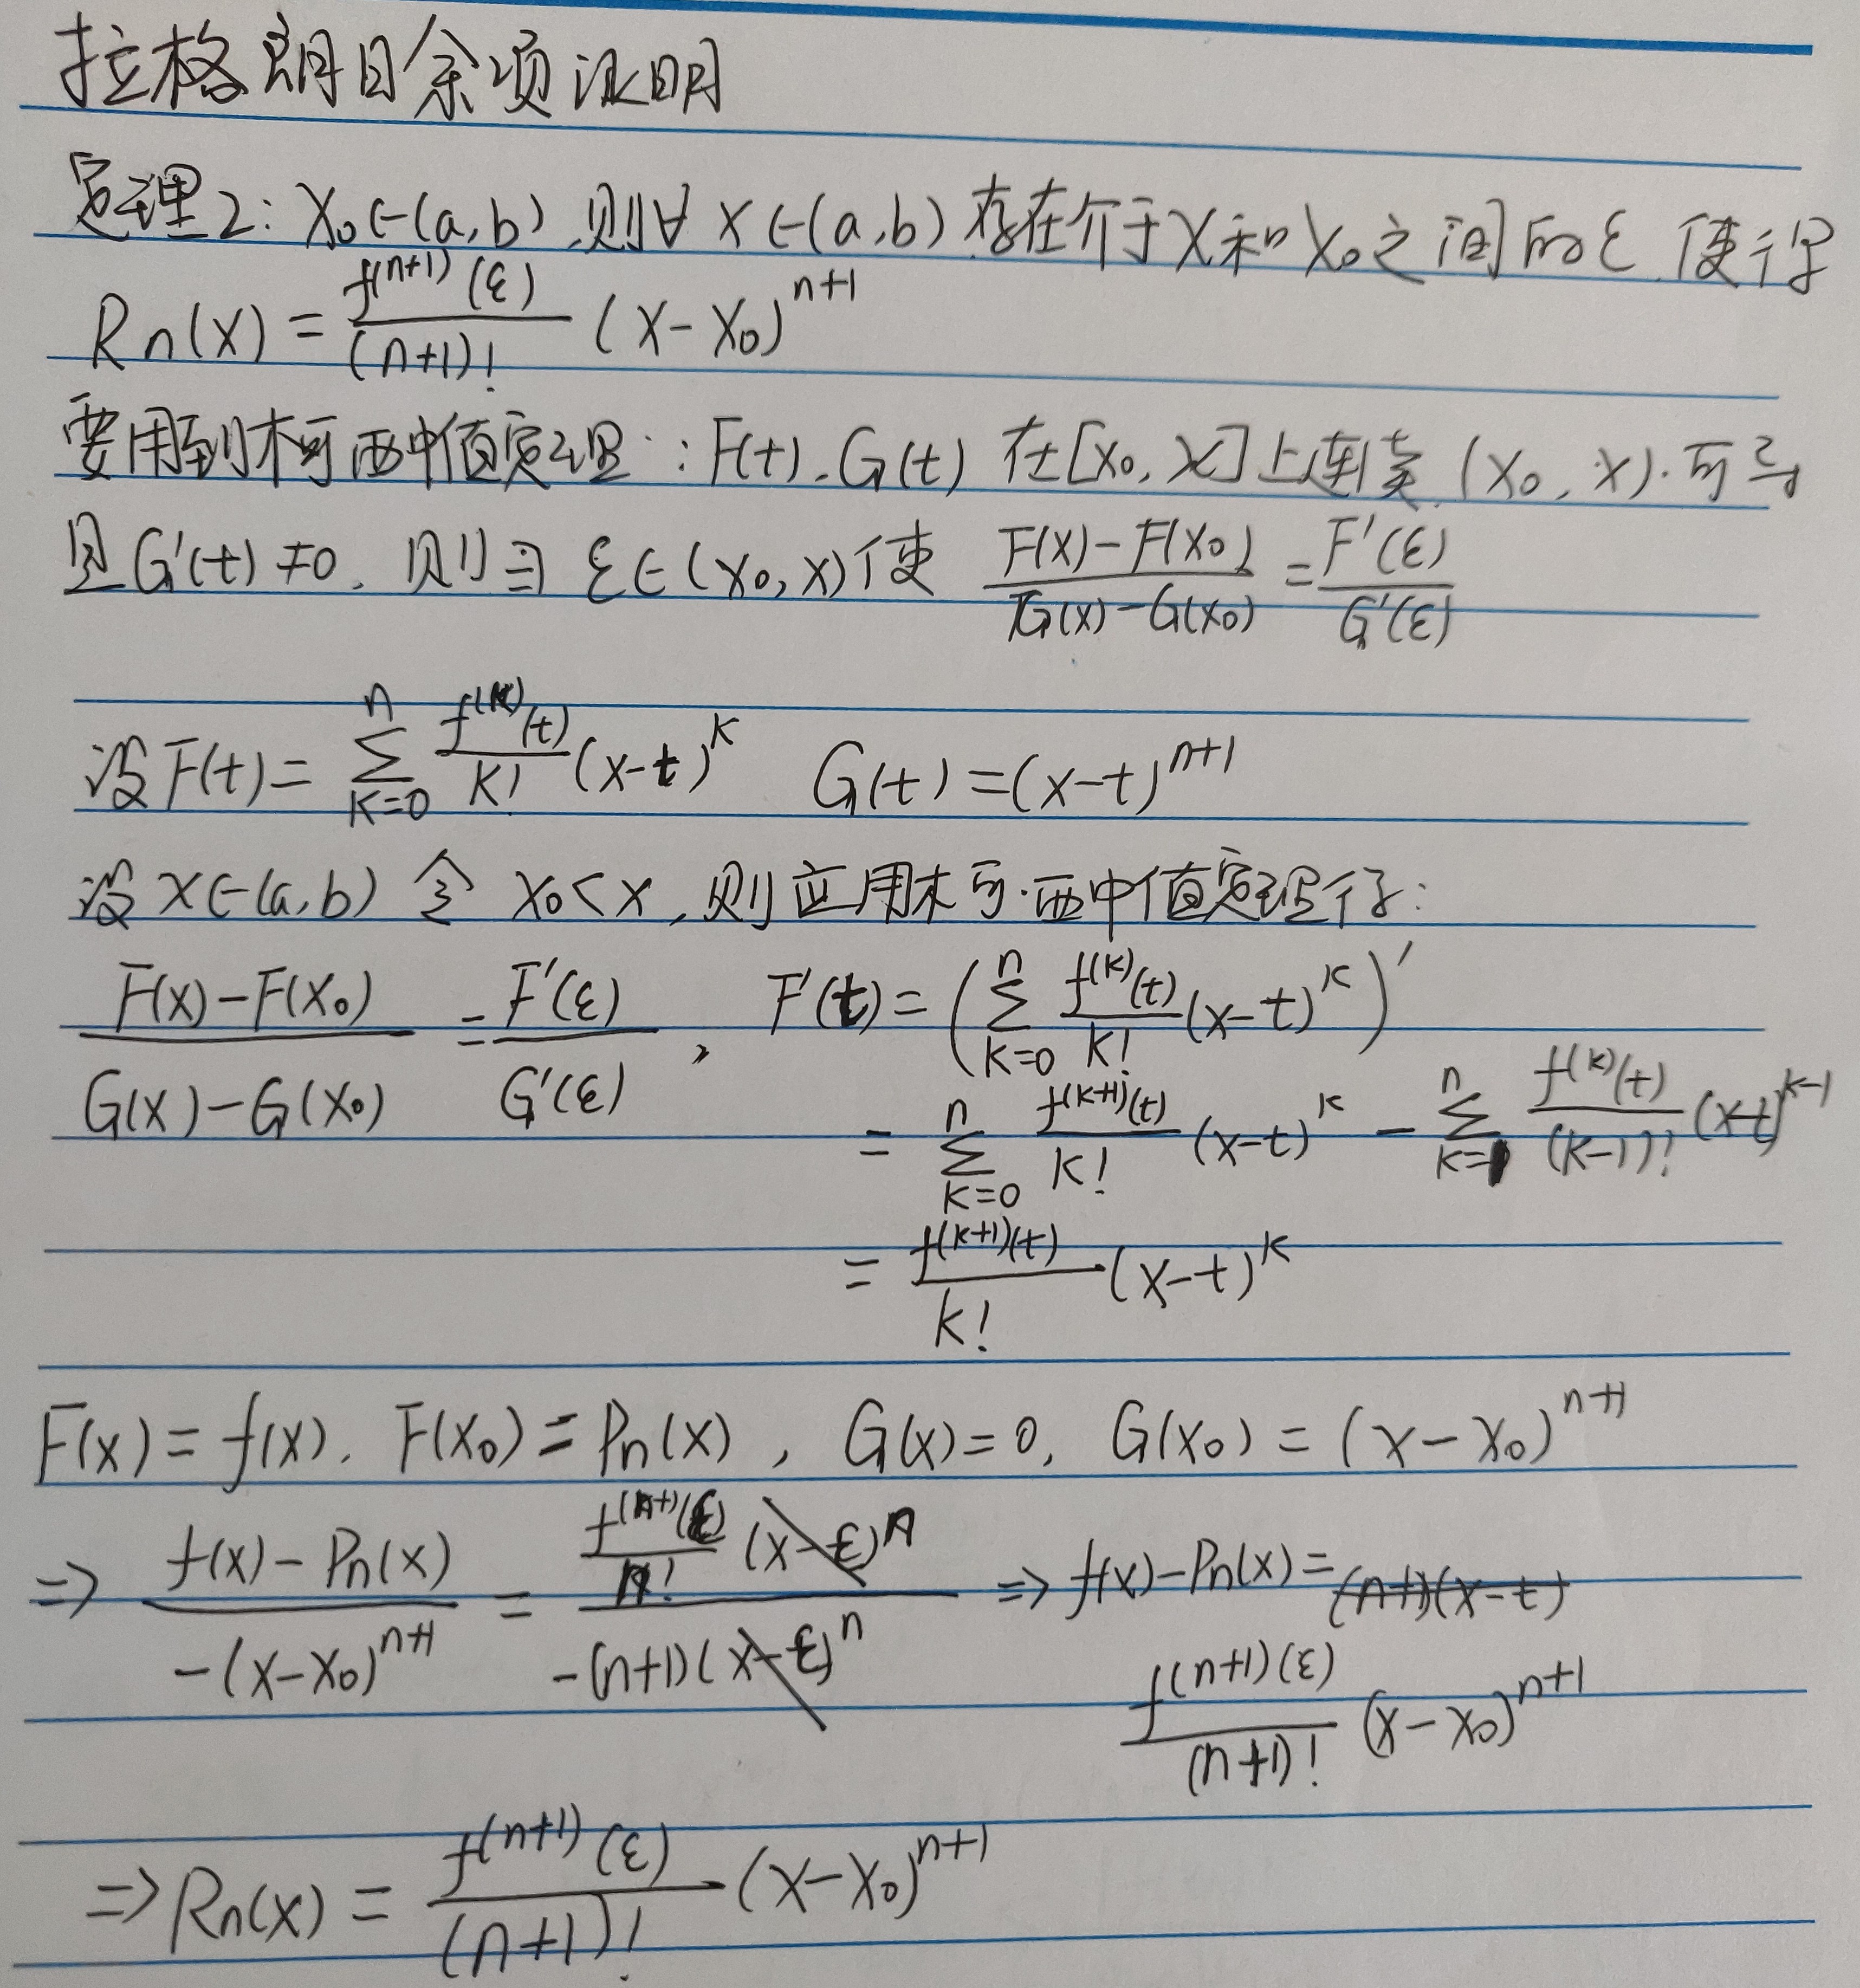 拉格朗日余项证明
定理2: x₀∈(a,b),则∀x∈(a,b)存在介于x和x₀之间的ε,使得
Rn(x) = f⁽ⁿ⁺¹⁾(ε)/(n+1)! (x-x₀)ⁿ⁺¹
要用到柯西中值定理: F(t), G(t) 在[x₀, x]上连续, (x₀, x)可导
且G'(t)≠0, 则∃ε∈(x₀,x)使 (F(x)-F(x₀))/(G(x)-G(x₀)) = F'(ε)/G'(ε)
设F(t) = ∑_{k=0}^{n} f⁽ᵏ⁾(t)/k! (x-t)ᵏ G(t) = (x-t)ⁿ⁺¹
设x∈(a,b) 令 x₀<x,则应用柯西中值定理得:
(F(x)-F(x₀))/(G(x)-G(x₀)) = F'(ε)/G'(ε), F'(t) = (∑_{k=0}^{n} f⁽ᵏ⁾(t)/k! (x-t)ᵏ)'
= ∑_{k=0}^{n} f⁽ᵏ⁺¹⁾(t)/k! (x-t)ᵏ - ∑_{k=1}^{n} f⁽ᵏ⁾(t)/(k-1)! (x-t)ᵏ⁻¹
= f⁽ᵏ⁺¹⁾(t)/k! (x-t)ᵏ
F(x) = f(x), F(x₀) = Pn(x), G(x) = 0, G(x₀) = (x-x₀)ⁿ⁺¹
=> (f(x)-Pn(x))/(-(x-x₀)ⁿ⁺¹) = (f⁽ⁿ⁺¹⁾(ε)/n! (x-ε)ⁿ)/(-(n+1)(x-ε)ⁿ) => f(x)-Pn(x) =
f⁽ⁿ⁺¹⁾(ε)/(n+1)! (x-x₀)ⁿ⁺¹
=> Rn(x) = f⁽ⁿ⁺¹⁾(ε)/(n+1)! (x-x₀)ⁿ⁺¹